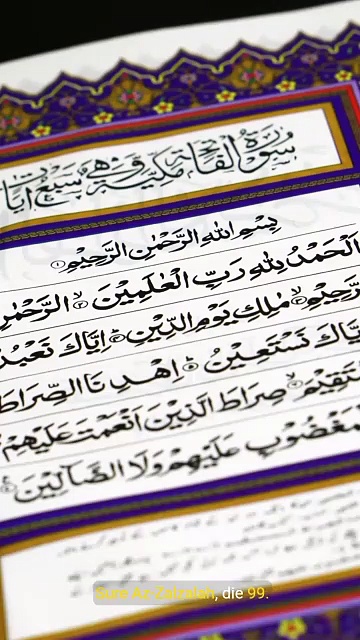 سُوْرَةُ الْفَاتِحَةِ مَكِّيَّةٌ وَّهِيَ سَبْعُ اٰيَاتٍ
بِسْمِ اللّٰهِ الرَّحْمٰنِ الرَّحِيْمِ ۝١
اَلْحَمْدُ لِلّٰهِ رَبِّ الْعٰلَمِيْنَ ۝٢ الرَّحْمٰنِ
الرَّحِيْمِ ۝٣ مٰلِكِ يَوْمِ الدِّيْنِ ۝٤ اِيَّاكَ نَعْبُدُ
اِيَّاكَ نَسْتَعِيْنُ ۝٥ اِهْدِنَا الصِّرَاطَ
مُسْتَقِيْمَ ۝٦ صِرَاطَ الَّذِيْنَ اَنْعَمْتَ عَلَيْهِمْ
الْمَغْضُوْبِ عَلَيْهِمْ وَلَا الضَّآلِّيْنَ ۝٧
Sure Az-Zalzalah, die 99.